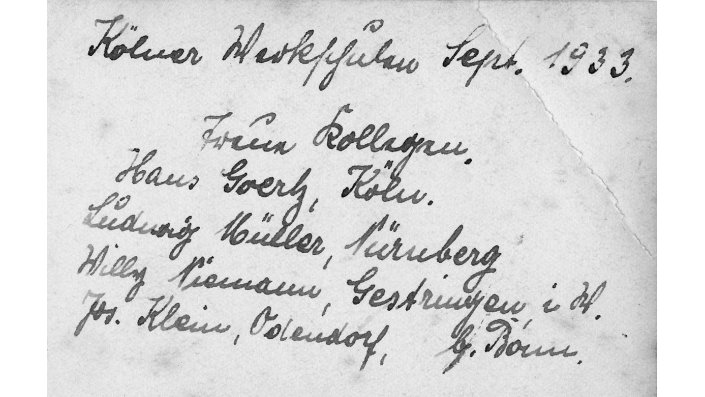 Kölner Werkschulen Sept. 1933.
Treue Kollegen.
Hans Goertz, Köln.
Ludwig Müller, Nürnberg
Willy Niemann, Gestringen, i. W.
Jos. Klein, Odendorf, b. Bonn.